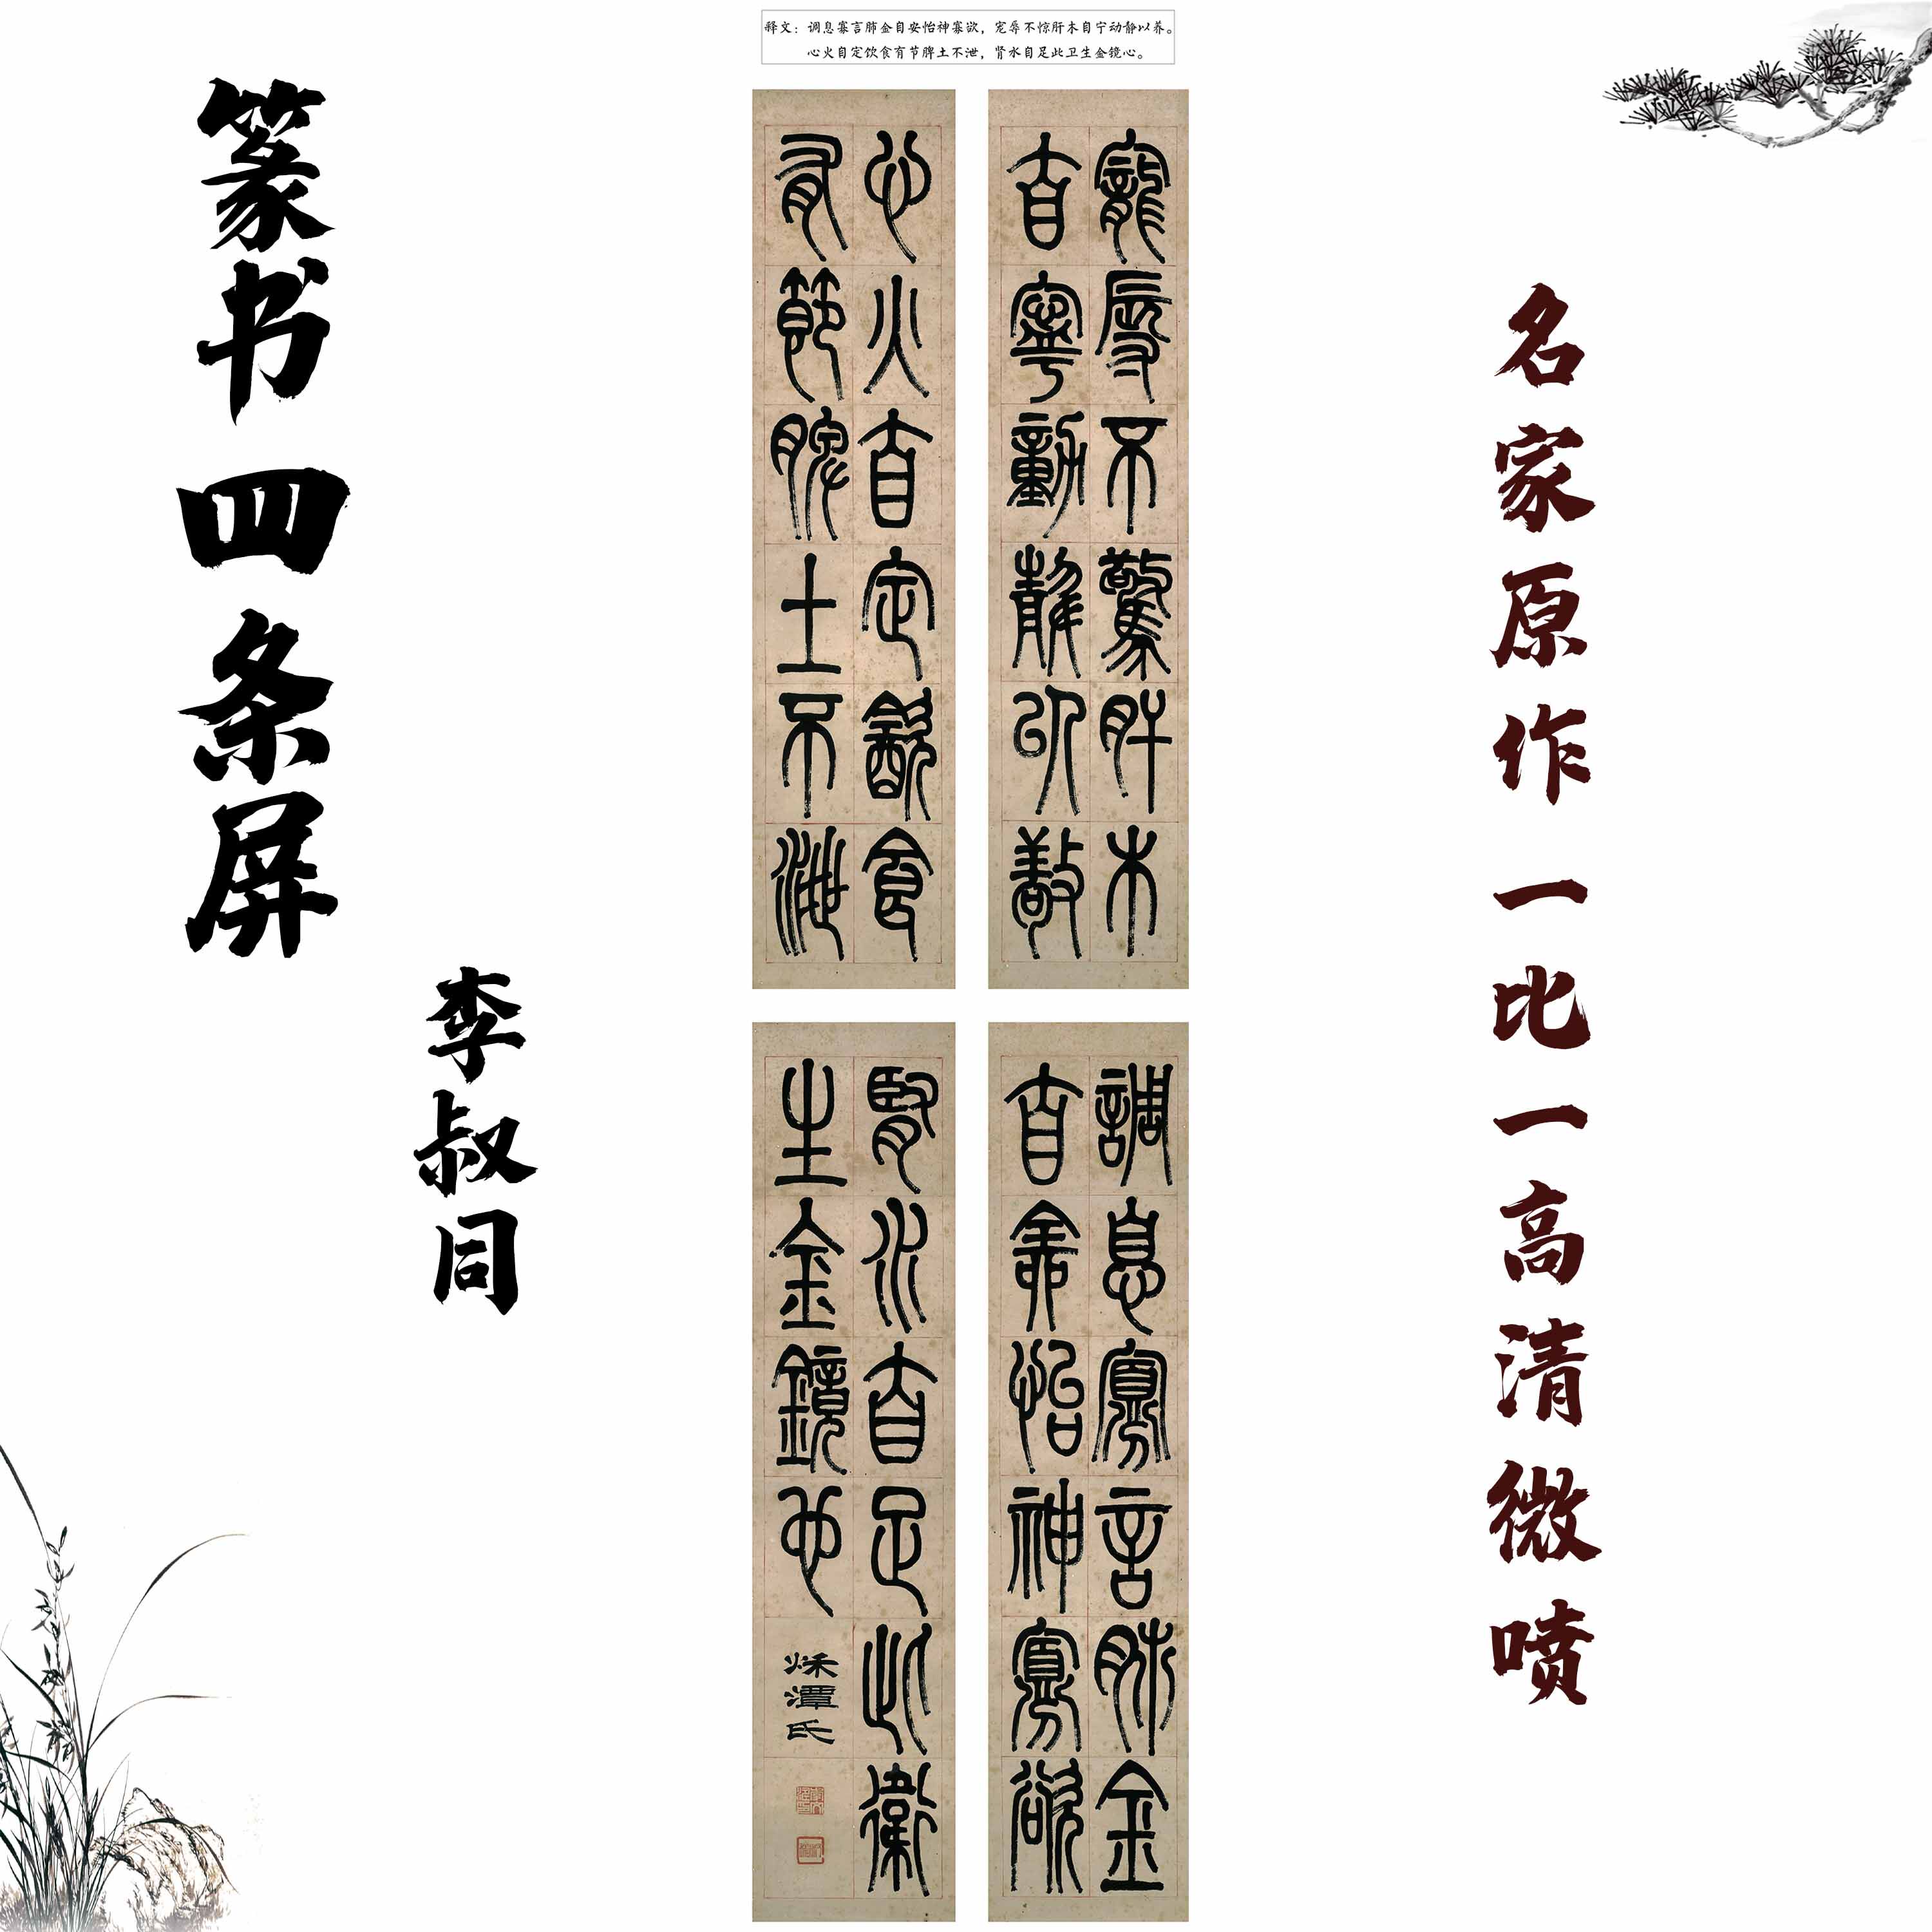 释文：调息寡言肺金自安怡神寡欲，宠辱不惊肝木自宁动静以养。
心火自定饮食有节脾土不泄，肾水自足此卫生金镜心。
篆书四条屏
李叔同
調息寡言肺金
自全怡神寡欲
寵辱不驚肝木
自寧動靜以敬
心火自定㱃食
有節脾土不泄
腎水自足此衛
生金鏡也
秌潭氏
名家原作一比一高清微喷